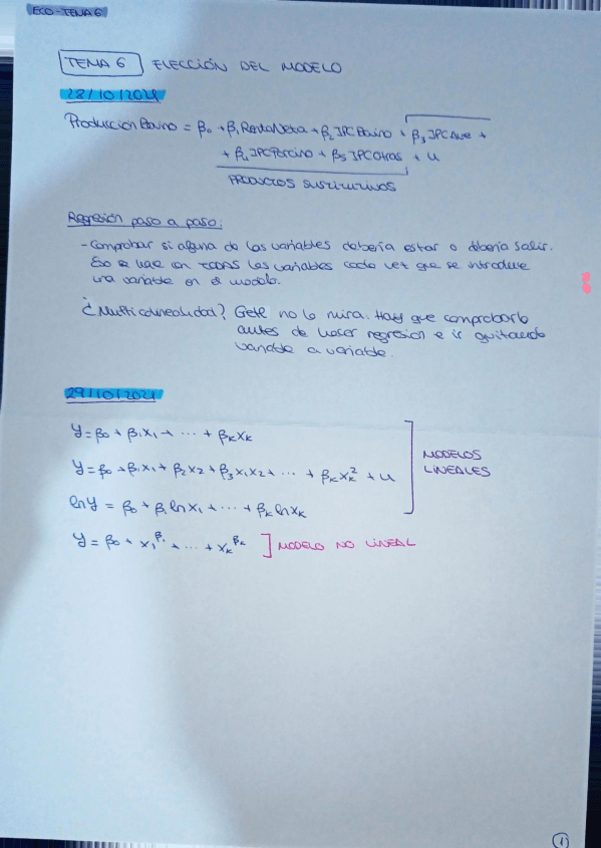 ECO-TEMA 6
TEMA 6 ELECCIÓN DEL MODELO
28/10/2021
Producción Bovino = β₀ + β₁ Renta Neta + β₂ IPC Bovino + β₃ IPC Ave +
+ β₄ IPC Porcino + β₅ IPC Otras + u
PRODUCTOS SUSTITUTIVOS
Regresión paso a paso:
- Comprobar si alguna de las variables debería estar o debería salir.
Eso se hace con todas las variables cada vez que se introduce
una variable en el modelo.
¿Multicolinealidad? Gete no lo mira. Hay que comprobarlo
antes de hacer regresión e ir quitando
variable a variable.
29/10/2021
y = β₀ + β₁x₁ + ... + βₖxₖ
y = β₀ + β₁x₁ + β₂x₂ + β₃x₁x₂ + ... + βₖxₖ² + u
MODELOS
LINEALES
ln y = β₀ + β₁ ln x₁ + ... + βₖ ln xₖ
y = β₀ + x₁^β₁ + ... + xₖ^βₖ ] MODELO NO LINEAL
1